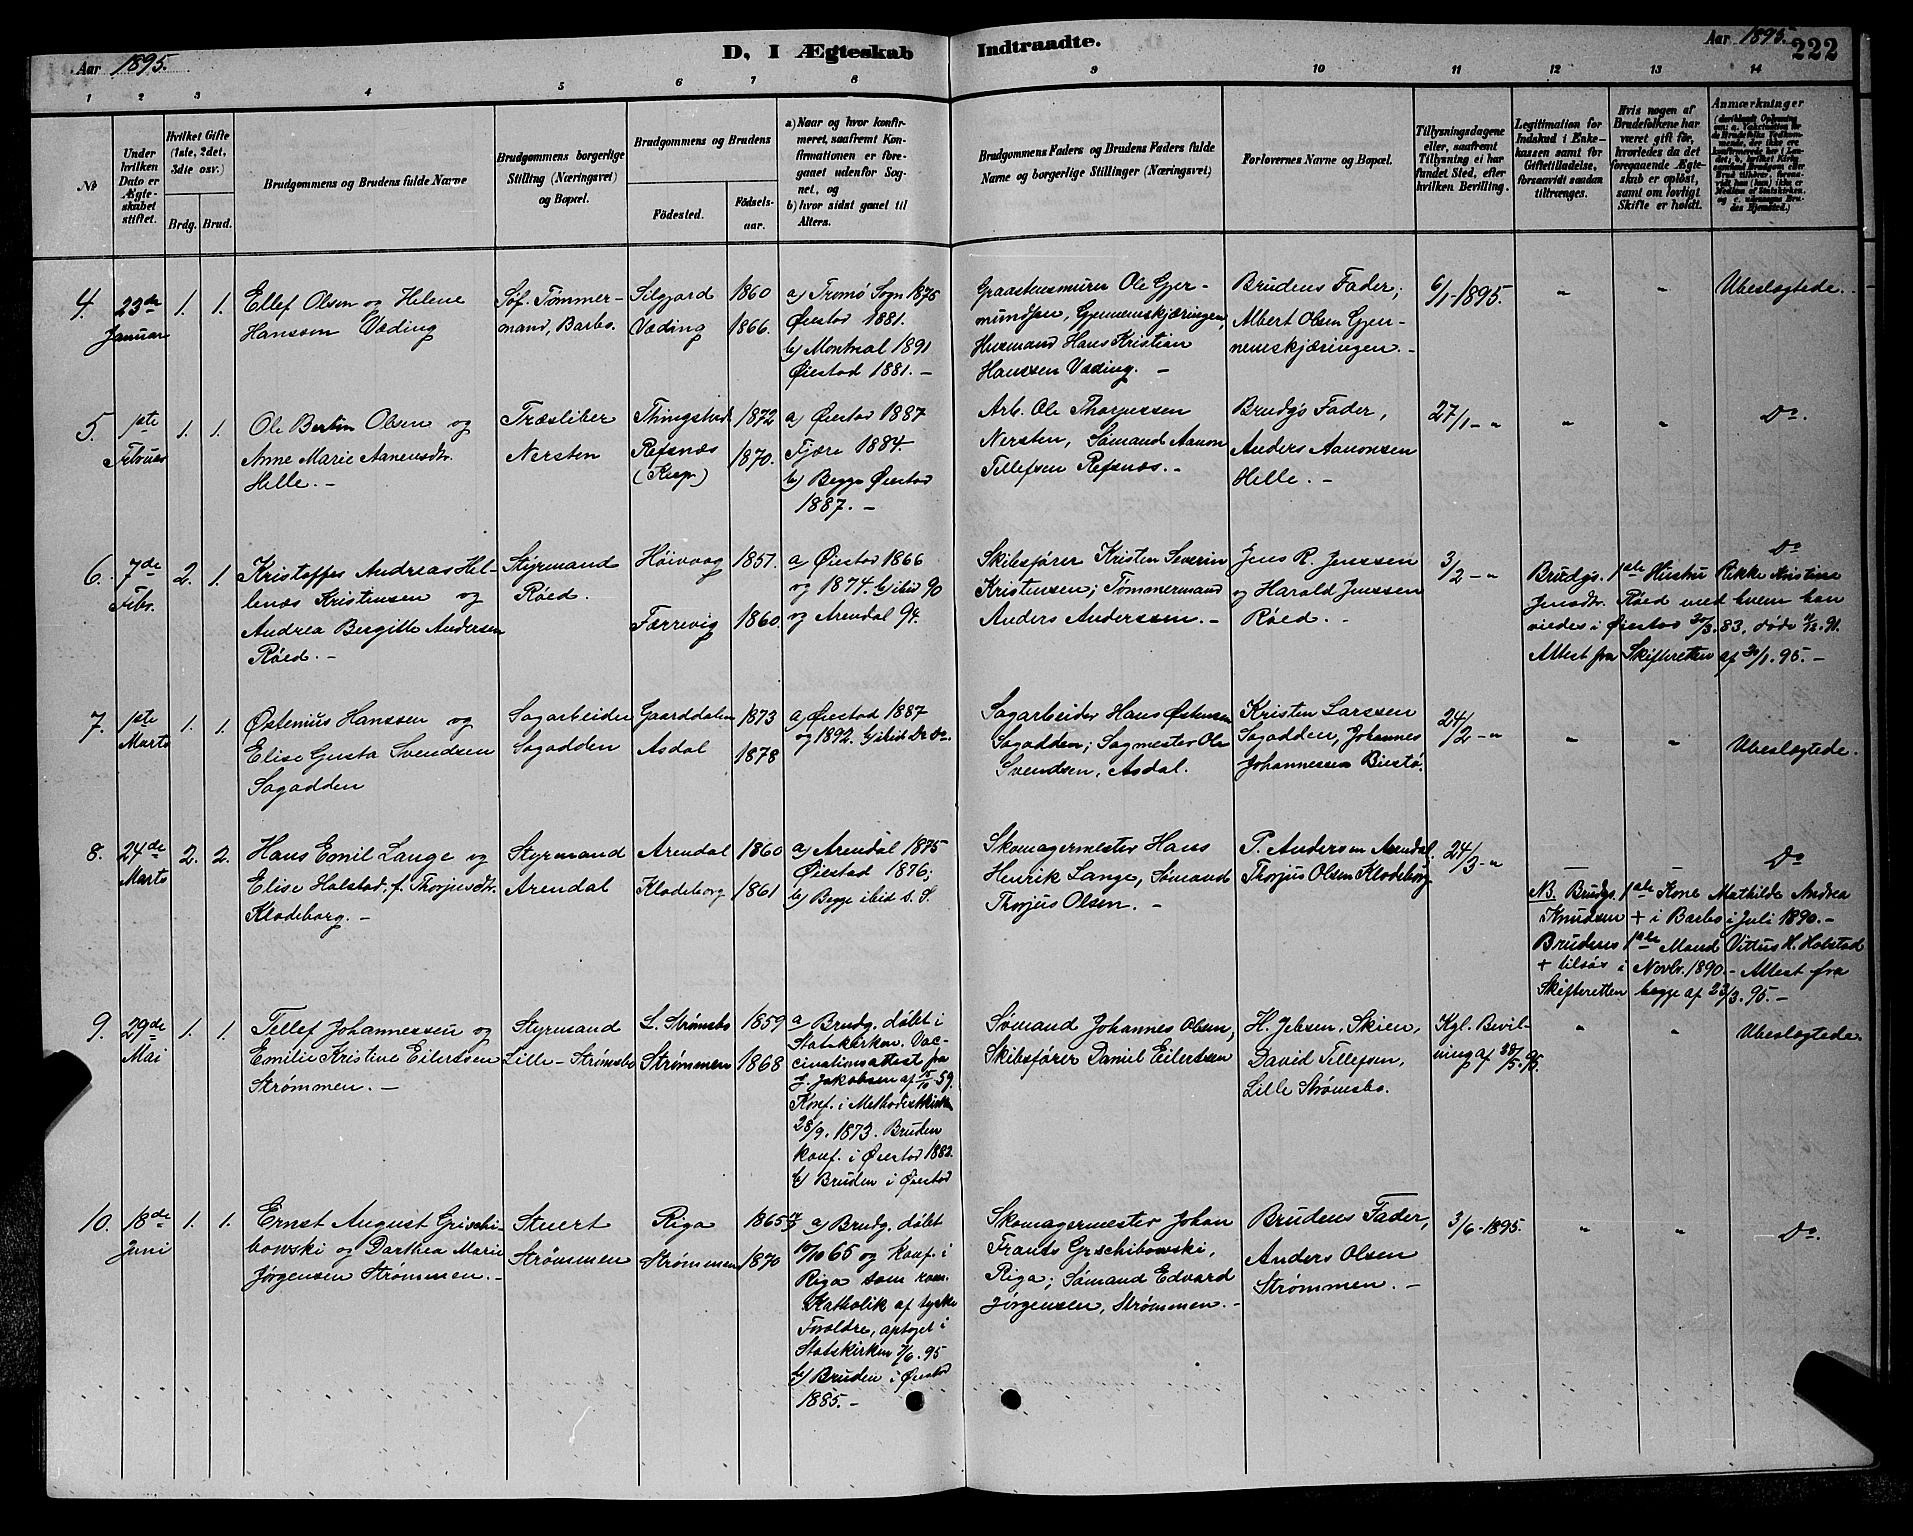 Aar 1895.
D, I Ægteskab Indtraadte.
Aar 1895.
222
1 2 3 4 5 6 7 8 9 10 11 12 13 14
No
Under hvilken Dato er Ægteskabet stiftet.
Hvilket Gifte (1ste, 2det, 3die osv.)
Brdg. Brud.
Brudgommens og Brudens fulde Navne
Brudgommens borgerlige Stilling (Næringsvei) og Bopæl.
Brudgommens og Brudens
Födested.
Födselsaar.
a) Naar og hvor konfirmeret, saafremt Konfirmationen er foregaaet udenfor Sognet, og
b) hvor sidst gaaet til Alters.
Brudgommens Faders og Brudens Faders fulde Navne og borgerlige Stillinger (Næringsvei)
Forlovernes Navne og Bopæl.
Tillysningsdagene eller, saafremt Tillysning ei har fundet Sted, efter hvilken Bevilling.
Legitimation for Indskud i Enkekassen samt for Giftetilladelse, forsaavidt saadan tiltrænges.
Hvis nogen af Brudefolkene har været gift før, hvorledes da det foregaaende Ægteskab er opløst, samt om lovligt Skifte er holdt.
Anmærkninger
4. 23de Januar 1. 1.
Ellef Olsen og Helene
Hanssen Væding
Söf. Tömmermand, Barbo.
Silgjord 1860
Væding 1866.
a) Tromø Sogn 1875
Øiestad 1881.
b) Montreal 1891
Øiestad 1881. –
Graastensmurer Ole Gjermundsen, Gjennemskjæringen,
Husmand Hans Kristian
Hanssen Væding. –
Brudens Fader;
Albert Olsen Gjennemskjæringen. –
6/1 - 1895.
" "
Ubeslægtede.
5. 1ste Februar 1. 1.
Ole Bertin Olsen og
Anne Marie Aanensdtr.
Hille. –
Træsliber
Nersten
Thingstad 1872
Refsnæs 1870.
(Risp)
a) Øiestad 1887
Fjære 1884.
b) Begge Øiestad
1887. –
Arb. Ole Thorjussen
Nersten, Sømand Aanon
Tellefsen Refsnæs. –
Brudgs Fader,
Anders Aanonsen
Hille. –
27/1 - "
" "
Do.
6. 7de Febr. 2. 1.
Kristoffer Andreas Hellenæs Kristensen og
Andrea Bergitte Andersen
Röed. –
Styrmand
Röed.
Höivaag 1857.
Færrevig 1860
a) Øiestad 1866
og 1874. b) ibid 90
og Arendal 94.
Skibsfører Kristen Severin
Kristensen; Tömmermand
Anders Anderssen. –
Jens R. Jenssen
og Harald Jenssen
Röed. –
3/2 - "
Do
Brudgs. 1ste Hustru Rikke Kristine
Jensdtr. Röed med hvem han
viedes i Øiestad 30/3. 83, døde 9/12. 91.
Attest fra Skifteretten af 30/1. 95. –
7. 1ste Marts 1. 1.
Østenius Hanssen og
Elise Gusta Svendsen
Sagadden
Sagarbeider
Sagadden
Gaarddalen 1873
Asdal 1878
a) Øiestad 1887
og 1892. b) ibid Do Do.
Sagarbeider Hans Østensen
Sagadden; Sagmester Ole
Svendsen, Asdal.
Kristen Larssen
Sagadden, Johannes
Johannessen Biestö.
24/2 - "
" "
Ubeslægtede.
8. 24de Marts 2. 2.
Hans Emil Lange og
Elise Holstad, f. Thorjusdtr.
Klodeborg. –
Styrmand
Arendal
Arendal 1860
Klodeborg 1861
a) Arendal 1875
Øiestad 1876;
b) Begge ibid s. S.
Skomagermester Hans
Henrik Lange, Sømand
Thorjus Olsen. –
P. Andersen Arendal.
Thorjus Olsen Klodeborg
24/3 - "
— —
Do
NB. Brudgs. 1ste Kone Mathilde Andrea
Knudsen + i Barbo i Juli 1890. –
Brudens 1ste Mand Vittus H. Holstad
+ tilsøs i Novbr. 1890. – Attest fra
Skifteretten begge af 23/3. 95. –
9. 29de Mai 1. 1.
Tellef Johannessen og
Emilie Kristine Eilertsen
Strømmen. –
Styrmand
Lille-Strømsbo
L. Strømsbo 1859
Strømmen 1868
a Brudg. døbt i
Statskirken. Vaccinationsattest fra
J. Jakobsen af 15/10 59.
Konf. i Methodistkirken
28/9. 1873. Bruden
konf. i Øiestad 1882.
b) Bruden i Øiestad
Sømand Johannes Olsen,
Skibsfører Daniel Eilertsen
H. Jebsen, Skien,
David Tellefsen,
Lille Strømsbo.
Kgl. Bevilning af 28/5. 95.
" "
Ubeslægtede.
10. 18de Juni 1. 1.
Ernst August Grischibowski og Darthea Marie
Jørgensen Strømmen. –
Stuert
Strømmen
Riga 1865
Strømmen 1870
a) Brudg. døbt
10/10 65 og Konf. i
Riga som rom.
Katholik af tyske
Forældre, optaget i
Statskirken 7/6. 95
b) Bruden i Øiestad
1885. –
Skomagermester Johan
Frants Grschibowski,
Riga; Sømand Edvard
Jørgensen, Strømmen. –
Brudens Fader,
Anders Olsen
Strømmen. –
3/6 - 1895.
" "
Do.